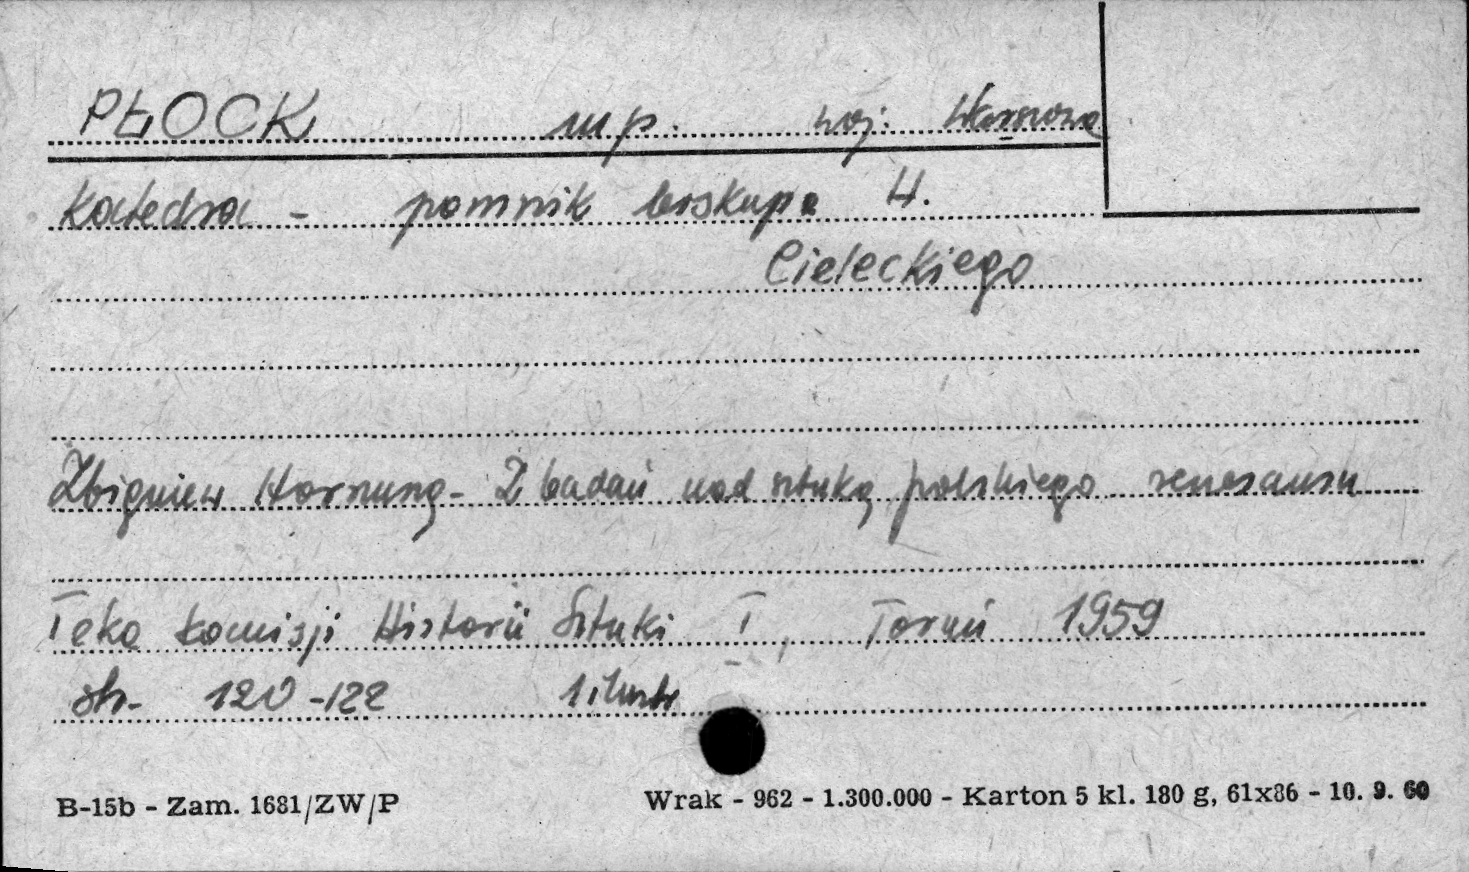 PŁOCK mp. woj. Warszowa
Katedra - pomnik biskupa H.
Cieleckiego
Zbigniew Hornung - Z badań nad sztuką polskiego renesansu
Teka Komisji Historii Sztuki I, Toruń 1959
str. 120-122 1 ilustr
B-15b - Zam. 1681/ZW/P Wrak - 962 - 1.300.000 - Karton 5 kl. 180 g, 61x86 - 10. 9. 60